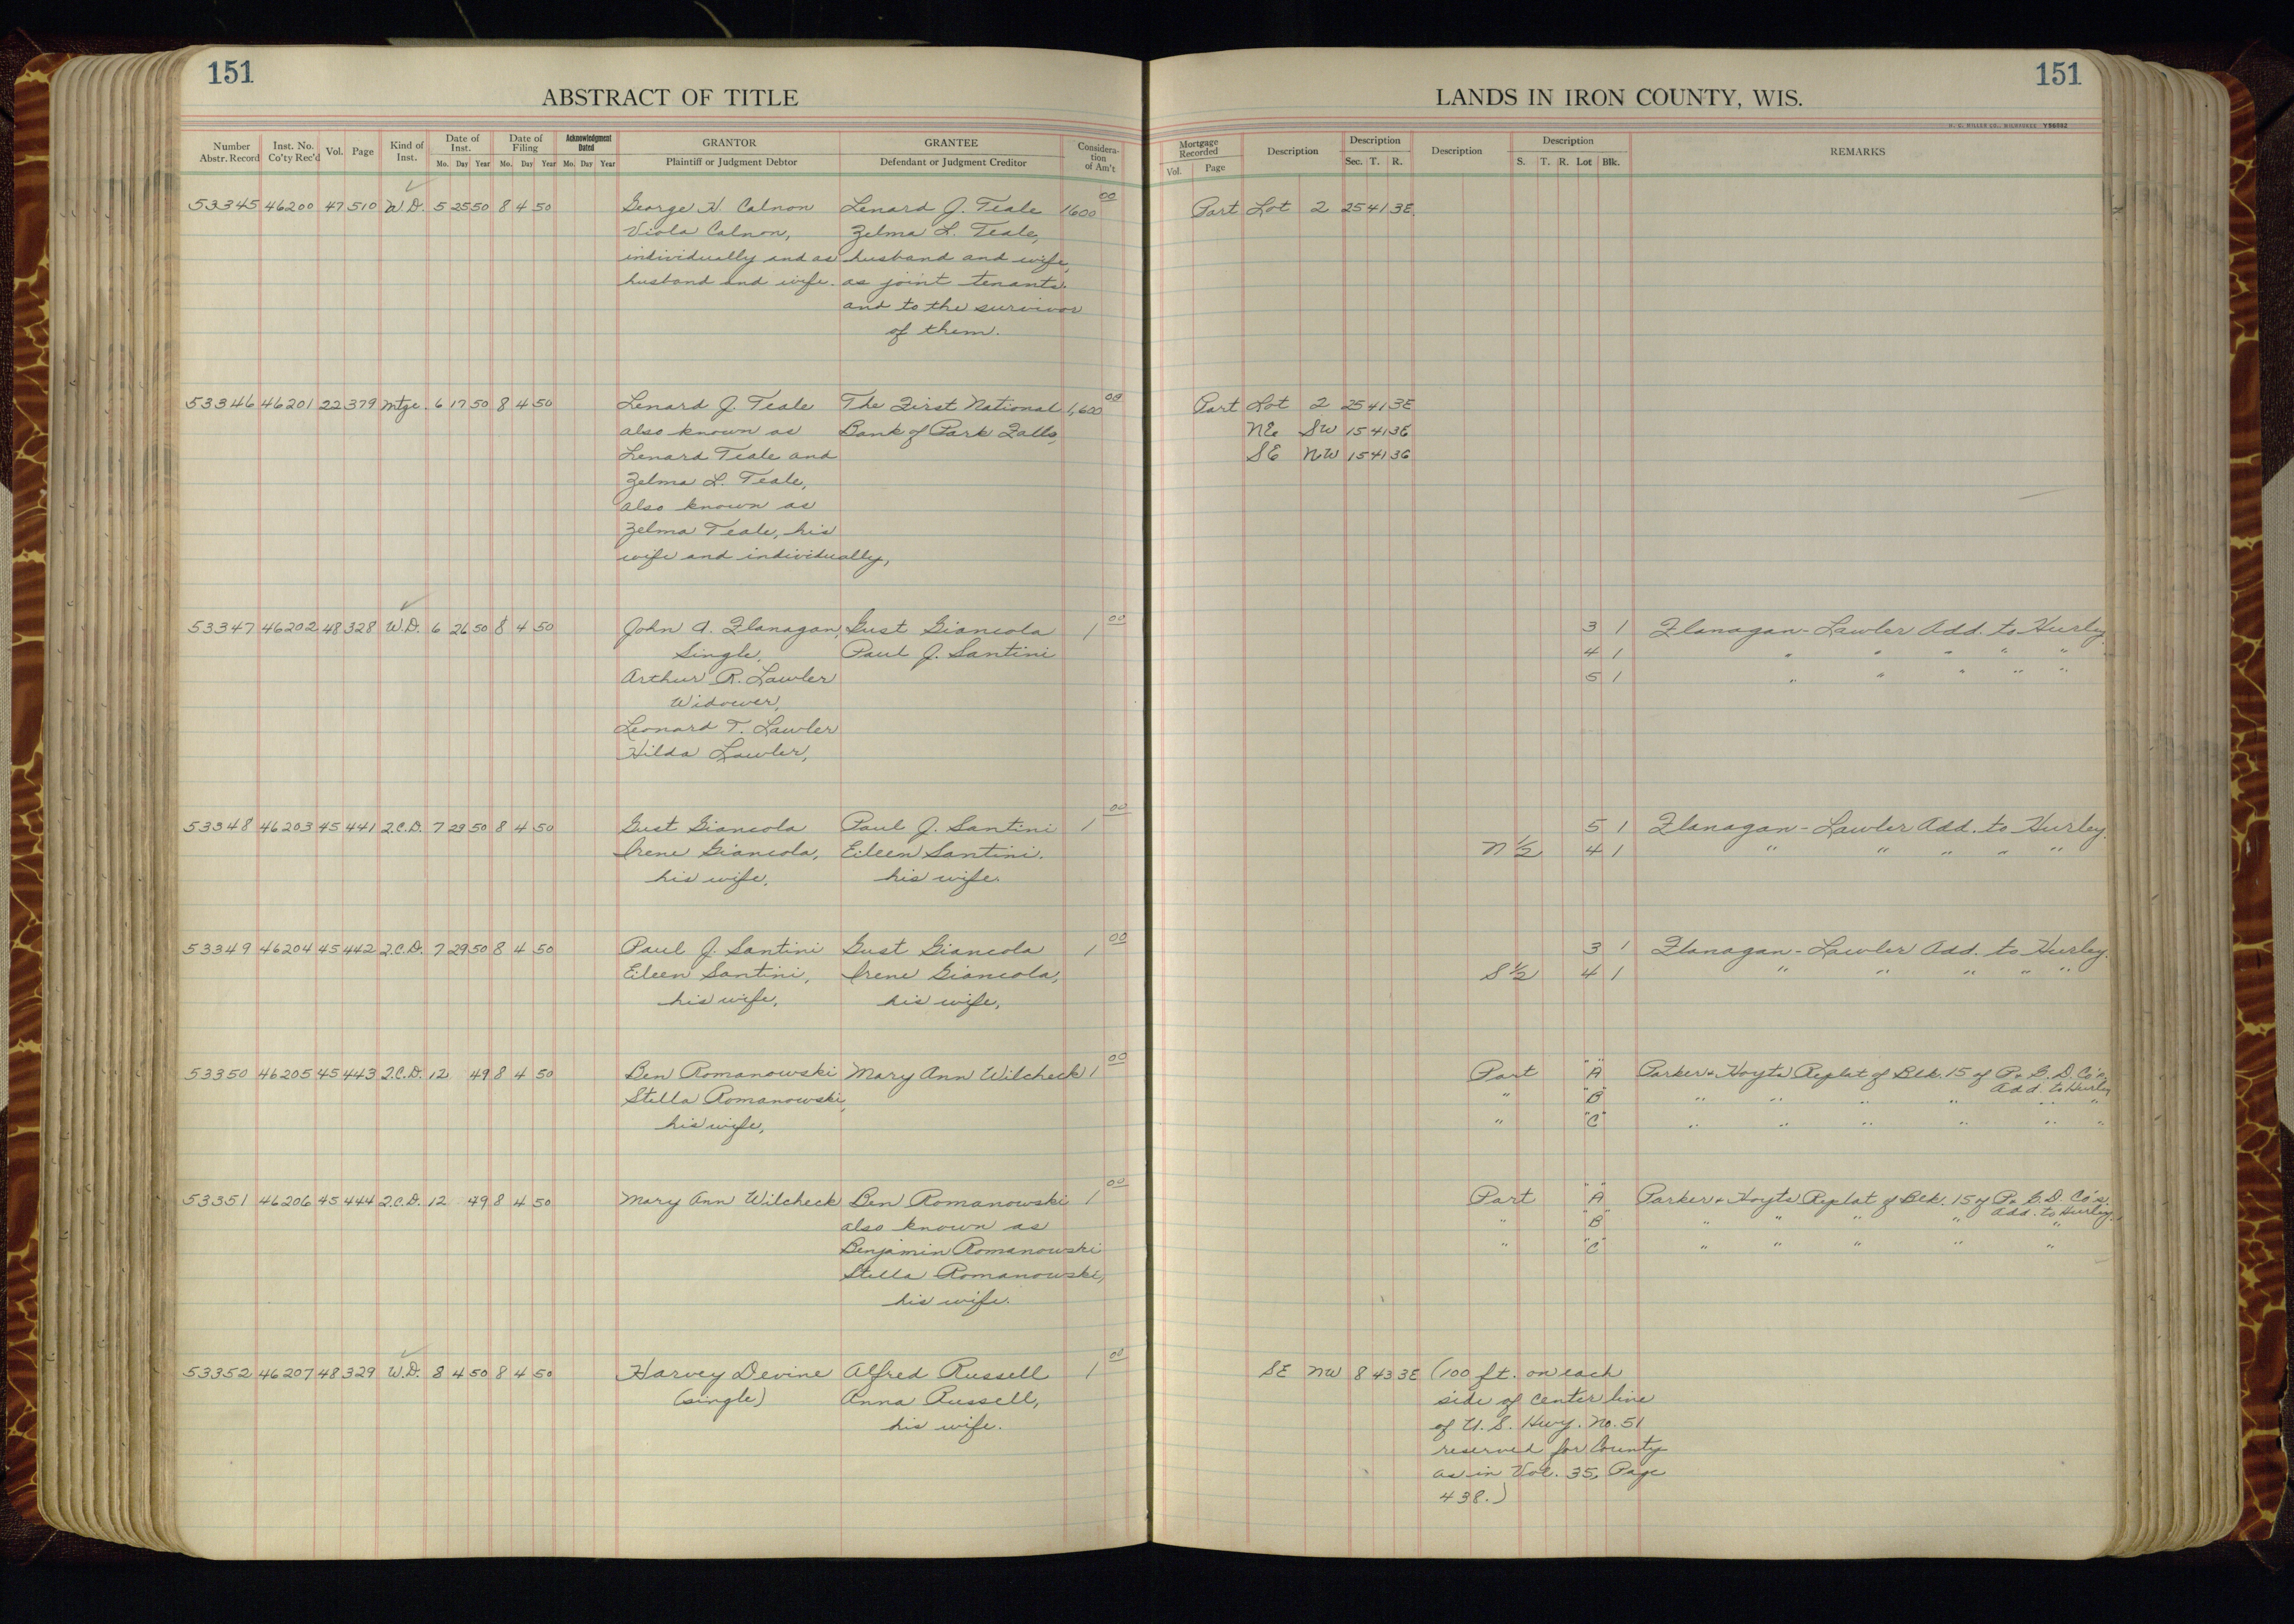 151
ABSTRACT OF TITLE
Number Abstr. Record Inst. No. Co'ty Rec'd Vol. Page Kind of Inst. Date of Inst. Mo. Day Year Date of Filing Mo. Day Year Acknowledgment Dated Mo. Day Year GRANTOR Plaintiff or Judgment Debtor GRANTEE Defendant or Judgment Creditor Considera-tion of Am't
53345 46200 47 510 W.D. 5 25 50 8 4 50 George H. Calnon Lenard J. Teale 1600 00
Viola Calnon, Zelma L. Teale,
individually and as husband and wife,
husband and wife. as joint tenants.
and to the survivor
of them.
53346 46201 22 379 Mtge. 6 17 50 8 4 50 Lenard J. Teale The First National 1,600 00
also known as Bank of Park Falls,
Lenard Teale and
Zelma L. Teale,
also known as
Zelma Teale, his
wife and individually,
53347 46202 48 328 W.D. 6 26 50 8 4 50 John A. Flanagan, Gust Giancola 1 00
Single, Paul J. Santini
Arthur R. Lawler
Widower,
Leonard T. Lawler
Hilda Lawler,
53348 46203 45 441 Q.C.D. 7 29 50 8 4 50 Gust Giancola Paul J. Santini 1 00
Irene Giancola, Eileen Santini.
his wife, his wife.
53349 46204 45 442 Q.C.D. 7 29 50 8 4 50 Paul J. Santini Gust Giancola 1 00
Eileen Santini, Irene Giancola,
his wife, his wife,
53350 46205 45 443 Q.C.D. 12 49 8 4 50 Ben Romanowski Mary Ann Wilcheck 1 00
Stella Romanowski,
his wife,
53351 46206 45 444 Q.C.D. 12 49 8 4 50 Mary Ann Wilcheck Ben Romanowski 1 00
also known as
Benjamin Romanowski
Stella Romanowski,
his wife.
53352 46207 48 329 W.D. 8 4 50 8 4 50 Harvey Devine Alfred Russell 1 00
(single) Anna Russell,
his wife.
151
LANDS IN IRON COUNTY, WIS.
H. C. MILLER CO., MILWAUKEE Y96962
Mortgage Recorded Vol. Page Description Description Sec. T. R. Description Description S. T. R. Lot Blk. REMARKS
Part Lot 2 25 41 3E.
Part Lot 2 25 41 3E
NE SW 15 41 3E
SE NW 15 41 3E
3 1 Flanagan-Lawler Add. to Hurley
4 1 " " " " "
5 1 " " " " "
5 1 Flanagan-Lawler Add. to Hurley.
N 1/2 4 1 " " " " "
3 1 Flanagan-Lawler Add. to Hurley.
S 1/2 4 1 " " " " "
Part "A" Parker & Hoyts Replat of Blk. 15 of P. & D. Co's,
Add. to Hurley
" "B" " " " " " "
" "C" " " " " " "
Part "A" Parker & Hoyts Replat of Blk. 15 of P. & D. Co's,
Add. to Hurley.
" "B" " " " " "
" "C" " " " " "
SE NW 8 43 3E (100 ft. on each
side of center line
of U.S. Hwy. No. 51
reserved for County
as in Vol. 35, Page
438.)